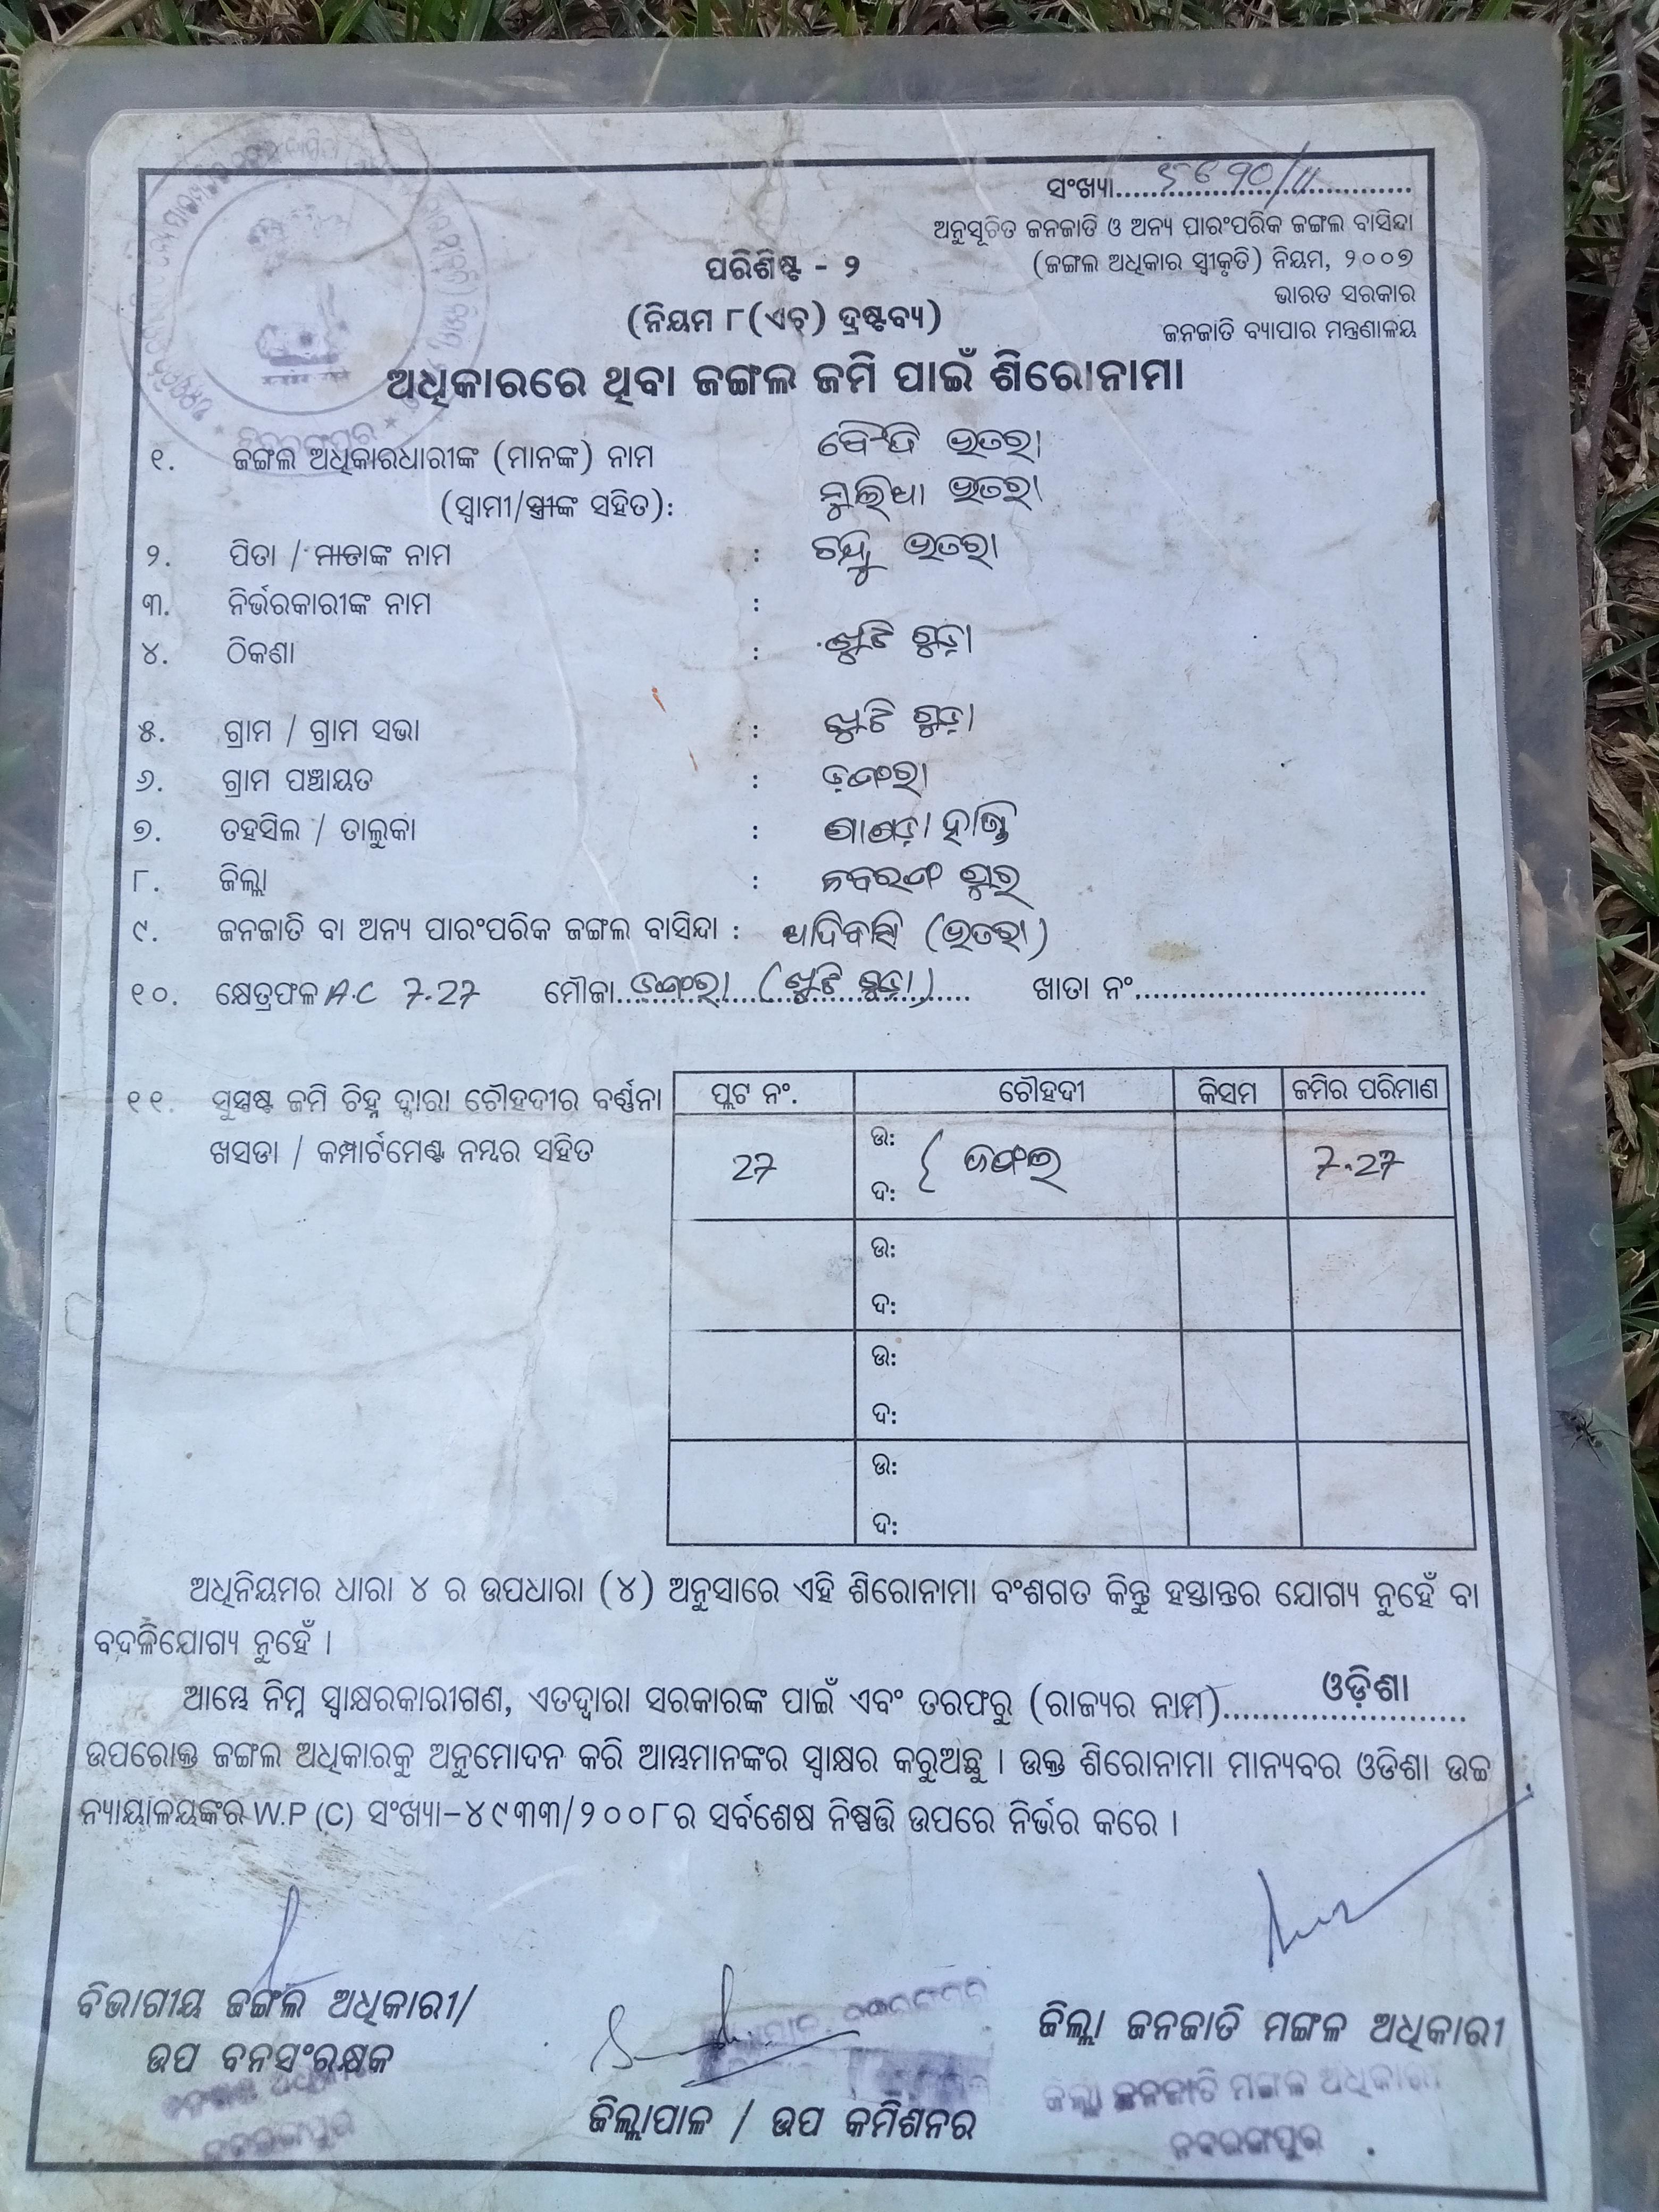 ସଂଖ୍ୟା....................
ଅନୁସୂଚିତ ଜନଜାତି ଓ ଅନ୍ୟ ପାରଂପରିକ ଜଙ୍ଗଲ ବାସିନ୍ଦା
(ଜଙ୍ଗଲ ଅଧିକାର ସ୍ୱୀକୃତି) ନିୟମ, ୨୦୦୭
ଭାରତ ସରକାର
ଜନଜାତି ବ୍ୟାପାର ମନ୍ତ୍ରଣାଳୟ
ପରିଶିଷ୍ଟ - ୨
(ନିୟମ ୮(ଏଚ୍) ଦ୍ରଷ୍ଟବ୍ୟ)
ଅଧିକାରରେ ଥିବା ଜଙ୍ଗଲ ଜମି ପାଇଁ ଶିରୋନାମା
୧. ଜଙ୍ଗଲ ଅଧିକାରଧାରୀଙ୍କ (ମାନଙ୍କ) ନାମ ଭତରା
(ସ୍ୱାମୀ/ସ୍ତ୍ରୀଙ୍କ ସହିତ): ଭତରା
୨. ପିତା / ମାତାଙ୍କ ନାମ : ଭତରା
୩. ନିର୍ଭରକାରୀଙ୍କ ନାମ :
୪. ଠିକଣା : ଖୁଟି ଗୁଡ଼ା
୫. ଗ୍ରାମ / ଗ୍ରାମ ସଭା : ଖୁଟି ଗୁଡ଼ା
୬. ଗ୍ରାମ ପଞ୍ଚାୟତ :
୭. ତହସିଲ / ତାଲୁକା :
୮. ଜିଲ୍ଲା : ନବରଙ୍ଗ ପୁର୍
୯. ଜନଜାତି ବା ଅନ୍ୟ ପାରଂପରିକ ଜଙ୍ଗଲ ବାସିନ୍ଦା : ଆଦିବାସି (ଭତରା)
୧୦. କ୍ଷେତ୍ରଫଳ A.C 7.27 ମୌଜା.......... (ଖୁଟି ଗୁଡ଼ା) ଖାତା ନଂ..............................
୧୧. ସୁସ୍ପଷ୍ଟ ଜମି ଚିହ୍ନ ଦ୍ୱାରା ଚୌହଦୀର ବର୍ଣ୍ଣନା
ଖସଡା / କମ୍ପାର୍ଟମେଣ୍ଟ ନମ୍ବର ସହିତ
ପ୍ଲଟ ନଂ. ଚୌହଦୀ କିସମ ଜମିର ପରିମାଣ
27 ଉ: ଦ: { ଜଙ୍ଗଲ 7.27
ଉ:
ଦ:
ଉ:
ଦ:
ଉ:
ଦ:
ଅଧିନିୟମର ଧାରା ୪ ର ଉପଧାରା (୪) ଅନୁସାରେ ଏହି ଶିରୋନାମା ବଂଶଗତ କିନ୍ତୁ ହସ୍ତାନ୍ତର ଯୋଗ୍ୟ ନୁହେଁ ବା
ବଦଳିଯୋଗ୍ୟ ନୁହେଁ ।
ଆମ୍ଭେ ନିମ୍ନ ସ୍ୱାକ୍ଷରକାରୀଗଣ, ଏତଦ୍ୱାରା ସରକାରଙ୍କ ପାଇଁ ଏବଂ ତରଫରୁ (ରାଜ୍ୟର ନାମ)..........ଓଡ଼ିଶା..........
ଉପରୋକ୍ତ ଜଙ୍ଗଲ ଅଧିକାରକୁ ଅନୁମୋଦନ କରି ଆମ୍ଭମାନଙ୍କର ସ୍ୱାକ୍ଷର କରୁଅଛୁ । ଉକ୍ତ ଶିରୋନାମା ମାନ୍ୟବର ଓଡିଶା ଉଚ୍ଚ
ନ୍ୟାୟାଳୟଙ୍କର W.P (C) ସଂଖ୍ୟା-୪୯୩୩/୨୦୦୮ର ସର୍ବଶେଷ ନିଷ୍ପତ୍ତି ଉପରେ ନିର୍ଭର କରେ ।
ବିଭାଗୀୟ ଜଙ୍ଗଲ ଅଧିକାରୀ/
ଉପ ବନସଂରକ୍ଷକ
ଜିଲ୍ଲାପାଳ / ଉପ କମିଶନର
ଜିଲ୍ଲା ଜନଜାତି ମଙ୍ଗଳ ଅଧିକାରୀ
ଜିଲ୍ଲା ଜନଜାତି ମଙ୍ଗଳ ଅଧିକାରୀ
ନବରଙ୍ଗପୁର